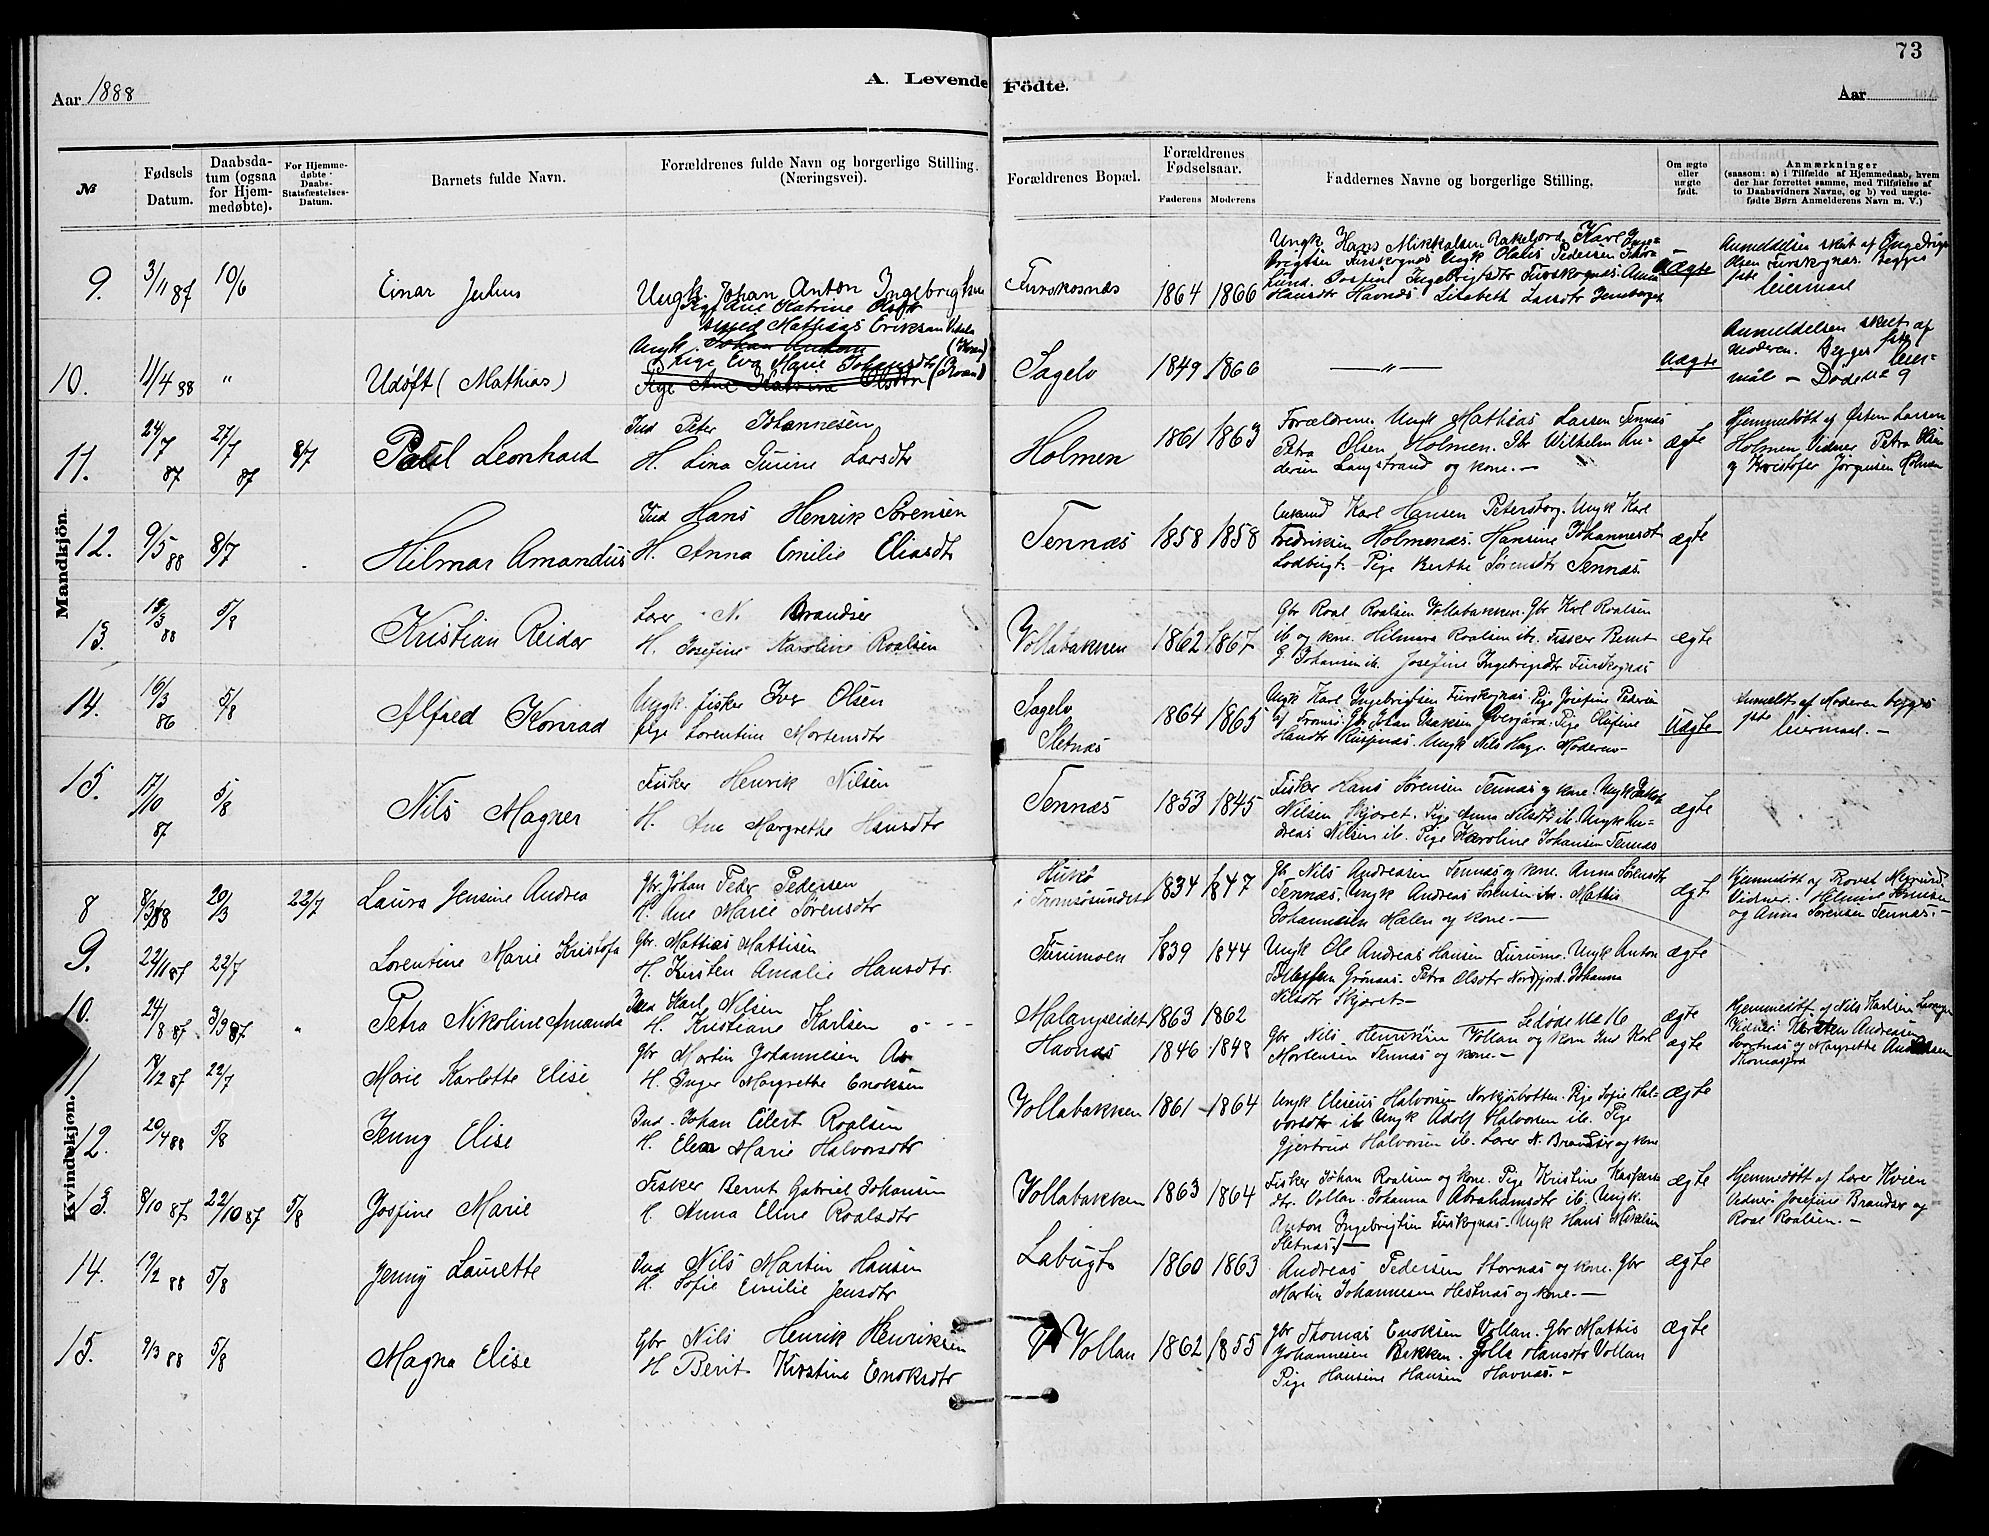 73
A. Levende Födte.
Aar 1888
Aar
№
Fødsels Datum.
Daabsdatum (ogsaa for Hjemmedøbte).
For Hjemmedøbte Daabs-Statsfæstelses-Datum.
Barnets fulde Navn.
Forældrenes fulde Navn og borgerlige Stilling. (Næringsvei).
Forældrenes Bopæl.
Forældrenes Fødselsaar.
Faderens Moderens
Faddernes Navne og borgerlige Stilling.
Om ægte eller uægte født.
Anmærkninger
(saasom: a) i Tilfælde af Hjemmedaab, hvem der har forrettet samme, med Tilføielse af to Daabsvidners Navne, og b) ved uægtefødte Børn Anmelderens Navn m. V.)
Mandkjön.
9. 3/11 87 10/6 Einar Julius
Ungk. Johan Anton Ingebrigtsen
Pige Ane Katrine Olsdtr
1864 1866
Ungk Hans Mikkalsen Karl Inge-
brigtsen Furskognæs Ungk Olaus Pedersen
Ingebrigtsdtr Furskognæs Anna
Hansdtr Havnæs Lisabeth Larsdtr
Uægte
Anmeldelsen skét af Ingebrigt
Olsen Furskognæs. Begges
1ste leiermaal
10. 11/4 88 " Udøpt (Mathias)
Mathias Eriksen (Kvæn)
Ungk. Johan Anton
Pige Eva Marie Johansdtr (Kvæn)
Pige Ane Katrina Olsdtr
Sagelv 1849 1866 — " —
Uægte
Anmeldelsen skeet af
Moderen. Begges 1ste leier-
mål — Døde № 9
11. 24/7 87 27/7 87 8/7 Paul Leonhard
Ind Peter Johannesen
H. Lina Larsdtr
Holmen 1861 1863
Forældrene. Ungk Mathias Larsen Tennæs
Petra Olsen Holmen. Gbr Wilhelm An-
dersen Langstrand og kone. —
ægte
Hjemmedøbt af Østen Larsen
Holmen Vidner Petra Olsen
og Kristofer Jørgensen Holmen
12. 9/5 88 8/7 Hilmar Amandus
Ind Hans Henrik Sørensen
H. Anna Emilie Eliasdtr
Tennæs 1858 1858
Karl Hansen Petersborg. Ungk Karl
Fredriksen Holmenæs. Hansine Johannesdtr
Lodbugt. Pige Berthe Sørensdtr Tennæs.
ægte
13. 18/3 88 5/8 Kristian Reidar
Lærer N. Brandser
H. Josefine Karoline Roalsen
Vollabakken 1862 1867
Gbr Roal Roalsen Vollabakken. Gbr Karl Roalsen
ib og kone. Hilmara Roalsen ib. Fisker Bernt
G. Johansen ib. Josefine Ingebrigtsdtr Furskognæs
ægte
14. 16/3 86 5/8 Alfred Konrad
Ungk. fisker Iver Olsen
Pige Lorentine Mortensdtr
Sagelv
Sletnæs
1864 1865
Ungk Karl Ingebrigtsen Furskognæs. Pige Josefine Pedersen
af Tromsø. Gbr Johan Isaksen Øvergård. Pige Olufine
Hansdtr Ungk Nils Moderen
Uægte
Anmeldt af Moderen begges
1ste leiermaal. —
15. 17/10 87 5/8 Nils Magner
Fisker Henrik Nilsen
H. Ane Margrethe Hansdtr
Tennæs 1853 1845
Fisker Hans Sørensen Tennæs og kone. Ungk
Nilsen Skjæret. Pige Anna Nilsdtr ib. Ungk An-
dreas Nilsen ib. Pige Karoline Johansen Tennæs
ægte
Kvindekjön.
8 8/3 88 20/3 22/7 Laura Jensine Andrea
Gbr. Johan Peder Pedersen
H. Ane Marie Sørensdtr
i Tromsøsundet 1834 1847
Gbr Nils Andreasen Tennæs og kone. Anna Sørensdtr
Tennæs. Ungk Andreas Sørensen ib. Mathis
Johannesen Mælen og kone —
ægte
Hjemmedøbt af Provst
Vidner:
og Anna Sørensen Tennæs. —
9. 22/11 87 22/7 Lorentine Marie Kristofa
Gbr. Mattias Mattisen
H. Kirsten Amalie Hansdtr.
Furumoen 1839 1844
Ungk Ole Andreas Hansen Furumo. Ungk Anton
Grønnæs. Petra Olsdtr Nordfjord. Johanna
Nilsdtr Skjæret —
ægte
10. 24/8 87 3/9 87 " Petra Nikoline Amanda
Ind Karl Nilsen
H. Kristiane Karlsen
Malangseidet 1863 1862
Se døde № 16
ægte
Hjemmedøbt af Nils Karlsen
Vidner: Andreasen
og Margrethe
11 18/12 87 22/7 Marie Karlotte Elise
Gbr Martin Johannesen
H. Inger Margrethe Enoksen
Havnæs 1846 1848
Gbr Nils Henriksen Vollan og kone Ind Karl
Mortensen Tennæs og kone —
ægte
12. 20/4 88 5/8 Jenny Elise
Ind Johan Eilert Roalsen
H. Elen Marie Halvorsdtr
Vollabakken 1861 1864
Ungk Eliseus Halvorsen Nordkjosbotten. Pige Sofie Hal-
vorsdtr ib Ungk Adolf Halvorsen ib. Pige
Gjertrud Halvorsen ib. Lærer N. Brandser og kone
ægte
13. 8/10 87 22/10 87 5/8 Josfine Marie
Fisker Bernt Gabriel Johansen
H. Anna Eline Roalsdtr
Vollabakken 1863 1864
Fisker Johan Roalsen og kone. Pige Kristine Kaspers-
dtr. Vollan. Johanna Abrahamsdtr ib. Ungk.
Anton Ingebrigtsen Furskognæs. Ungk Hans Mikalsen
Sletnæs. —
ægte
Hjemmedøbt af Lærer
Vidner: Josefine Brandser og
Roal Roalsen. —
14. 19/2 88 5/8 Jenny Laurette
Ind Nils Martin Hansen
H. Sofie Emilie Jensdtr
Labugt 1860 1863
Andreas Pedersen Stornæs og kone. Gbr
Martin Johannesen Hestnæs og kone. —
ægte
15. 9/3 88 5/8 Magna Elise
Gbr Nils Henrik Henriksen
H Berit Kirstine Enoksdtr
Vollan 1862 1855
Gbr Thomas Enoksen Vollan. Gbr Mathis
Johannesen Bekken. Hansdtr Vollan
Pige Hansine Hansen Havnæs. —
ægte